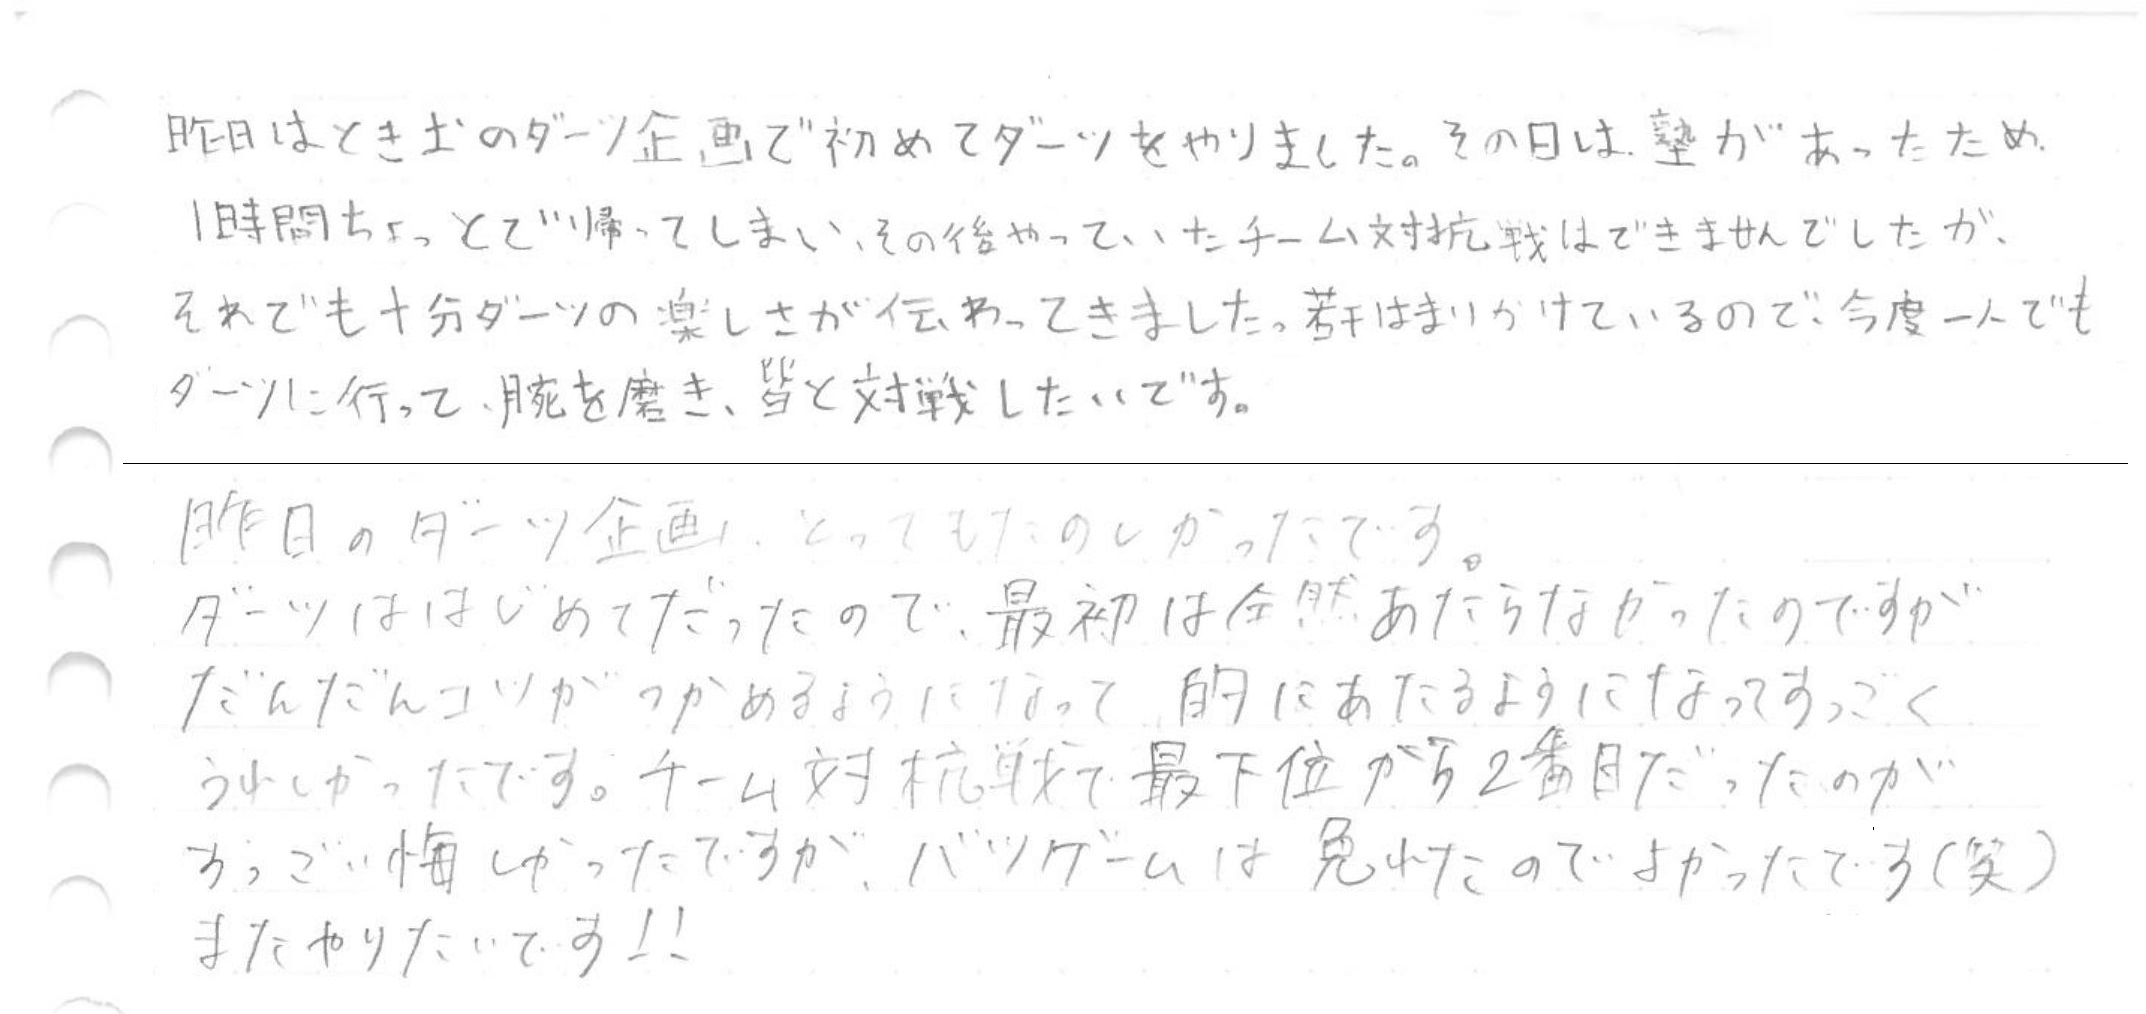 昨日はときどのダーツ企画で初めてダーツをやりました。その日は、塾があったため、
1時間ちょっとで帰ってしまい、その後やっていたチーム対抗戦はできませんでしたが、
それでも十分ダーツの楽しさが伝わってきました。若干はまりかけているので、今度一人でも
ダーツに行って、腕を磨き、皆と対戦したいです。
昨日のダーツ企画、とってもたのしかったです。
ダーツははじめてだったので、最初は全然あたらなかったのですが
だんだんコツがつかめるようになって、的にあたるようになってすっごく
うれしかったです。チーム対抗戦で最下位から2番目だったのが
すっごい悔しかったですが、バツゲームは免れたのでよかったです(笑)
またやりたいです!!